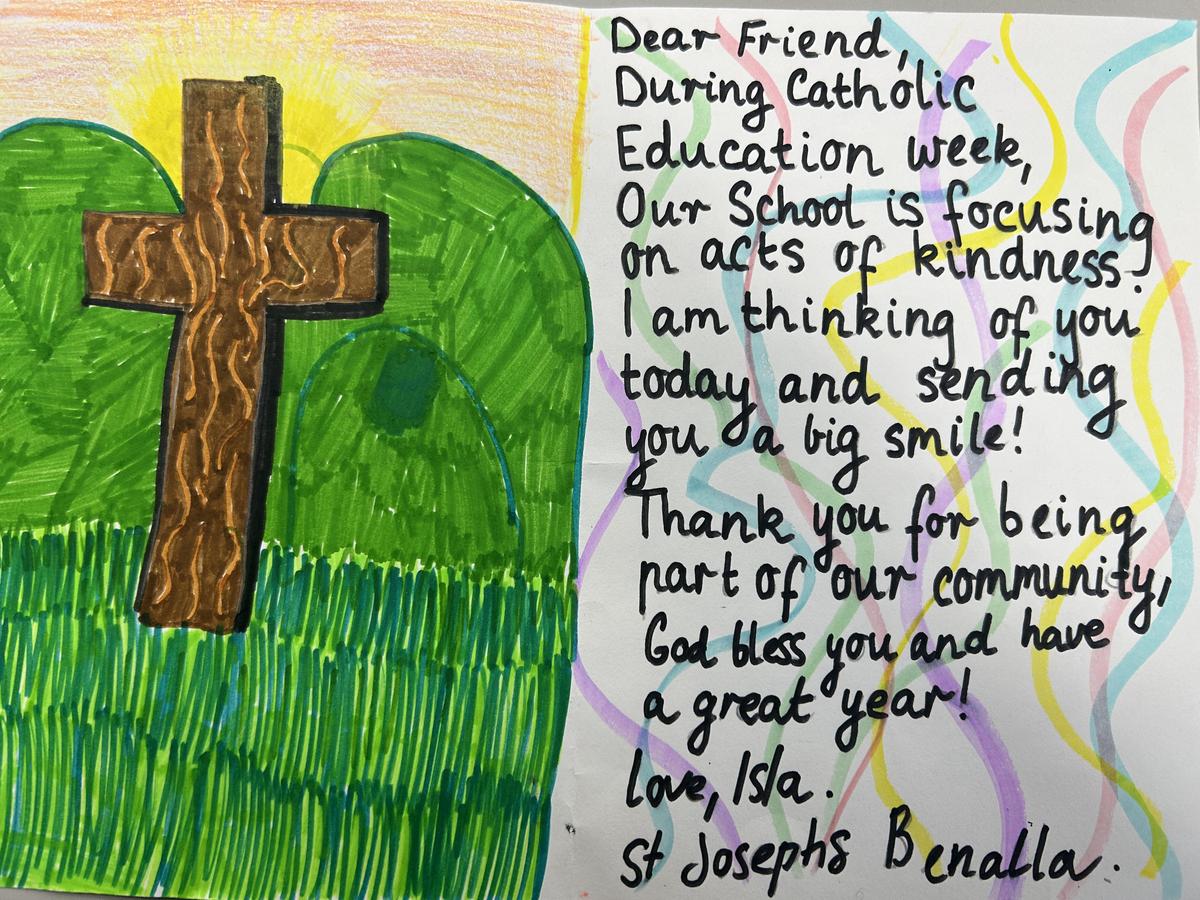 Dear Friend,
During Catholic
Education week,
Our School is focusing
on acts of kindness!
I am thinking of you
today and sending
you a big smile!
Thank you for being
part of our community,
God bless you and have
a great year!
love, Isla.
St Josephs Benalla.